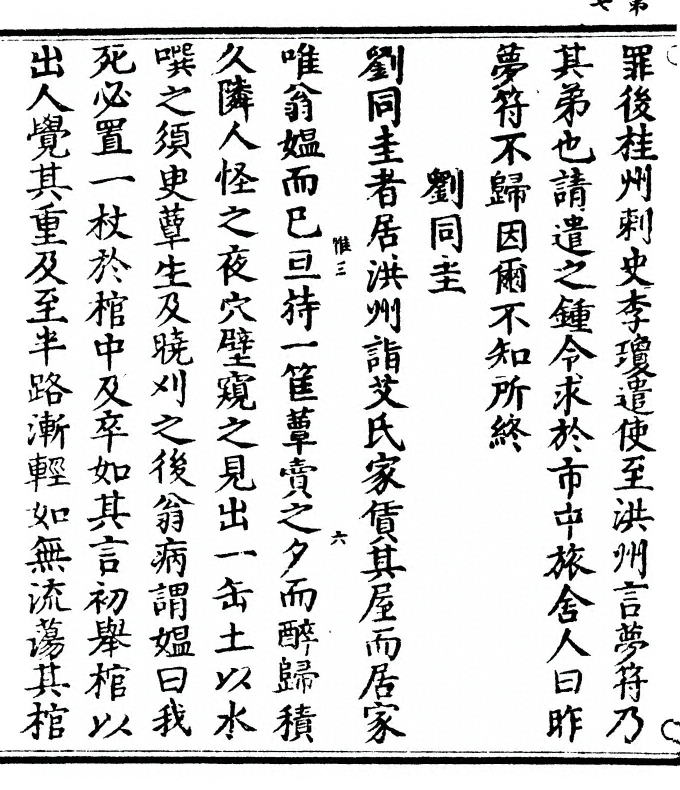 罪後桂州刺史李瓊遣使至洪州言夢符乃
其弟也請遣之鍾令求於市中旅舍人曰昨
夢符不歸因爾不知所終
劉同圭
劉同圭者居洪州詣艾氏家賃其屋而居家
唯翁媼而巳亘待一筐蕈賣之夕而醉歸積
久隣人怪之夜穴壁窺之見出一缶土以水
噀之須史蕈生及曉刈之後翁病謂媼曰我
死必置一杖於棺中及卒如其言初舉棺以
出人覺其重及至半路漸輕如無流蕩其棺